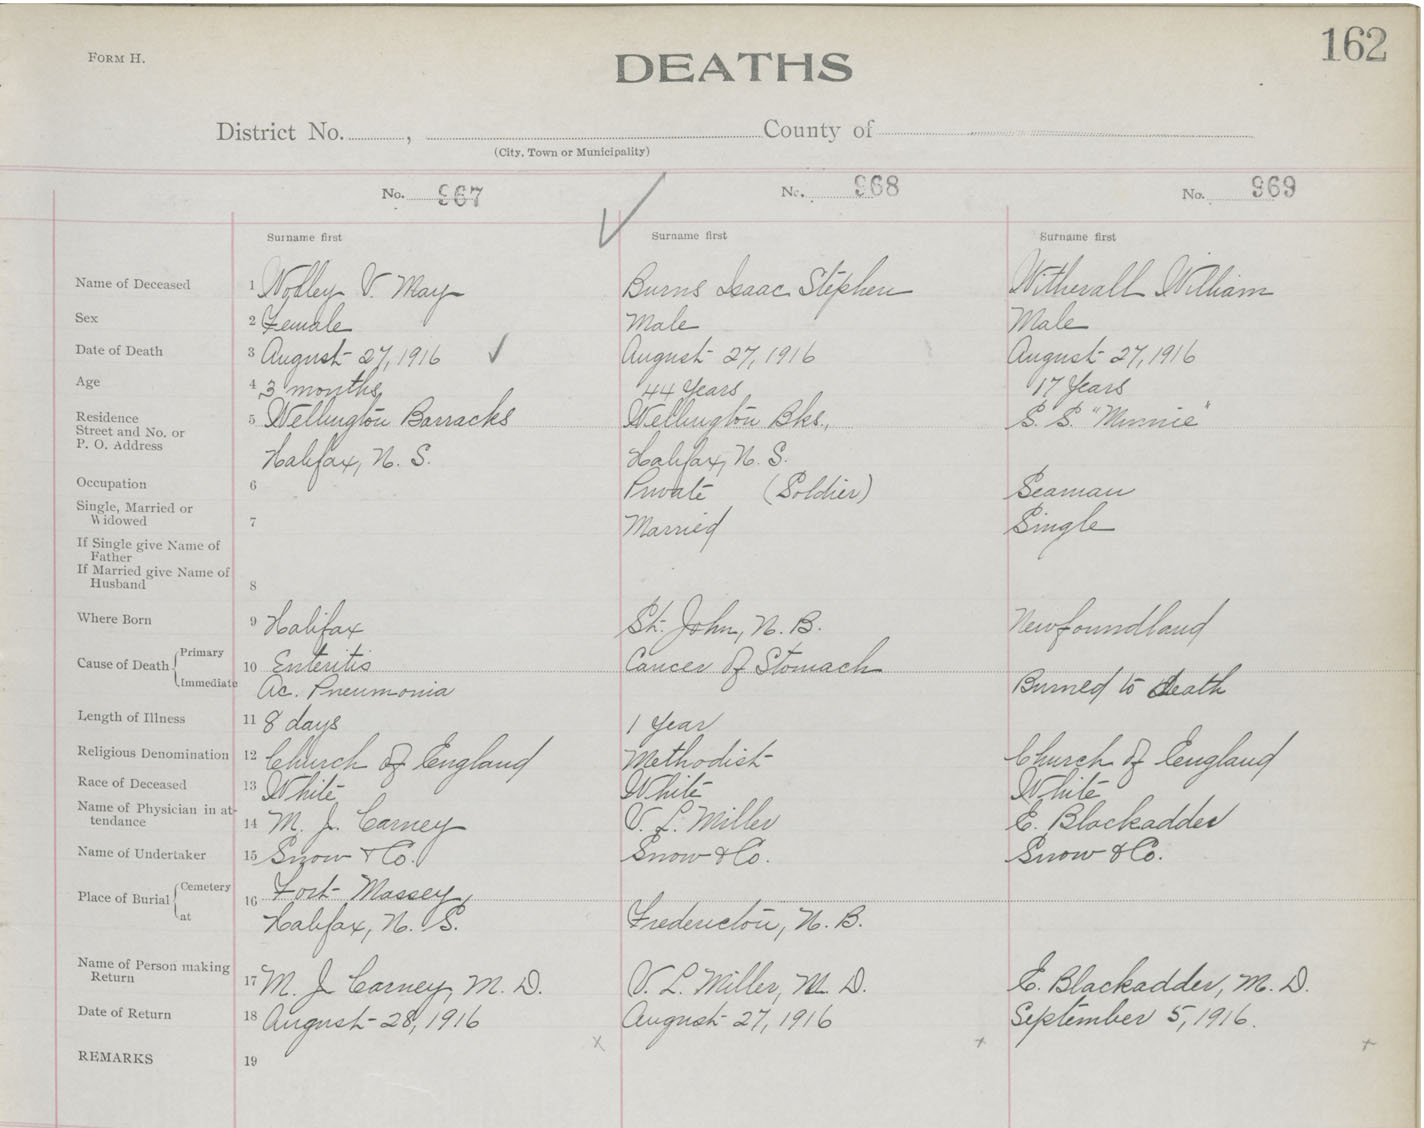 FORM H.
DEATHS
162
District No. , County of
(City, Town or Municipality)
No. 967
No. 968
No. 969
Surname first
Surname first
Surname first
Name of Deceased 1 V. May Burns Isaac Stephen Witherall William
Sex 2 Female Male Male
Date of Death 3 August 27, 1916 August 27, 1916 August 27, 1916
Age 4 3 months 44 Years 17 Years
Residence
Street and No. or 5 Wellington Barracks Wellington Bks., S. S. "Minnie"
P. O. Address
Halifax, N. S. Halifax, N. S.
Occupation 6 Private (Soldier) Seaman
Single, Married or
Widowed 7 Married Single
If Single give Name of
Father
If Married give Name of
Husband 8
Where Born 9 Halifax St. John, N. B. Newfoundland
Cause of Death Primary 10 Enteritis Cancer of Stomach
Immediate Ac. Pneumonia Burned to death
Length of Illness 11 8 days 1 Year
Religious Denomination 12 Church of England Methodist Church of England
Race of Deceased 13 White White White
Name of Physician in at-
tendance 14 M. J. Carney V. L. Miller E. Blackadder
Name of Undertaker 15 Snow & Co. Snow & Co. Snow & Co.
Place of Burial Cemetery 16 Fort Massey,
at Halifax, N. S. Fredericton, N. B.
Name of Person making
Return 17 M. J. Carney, M. D. V. L. Miller, M. D. E. Blackadder, M. D.
Date of Return 18 August 28, 1916 August 27, 1916 September 5, 1916.
REMARKS 19